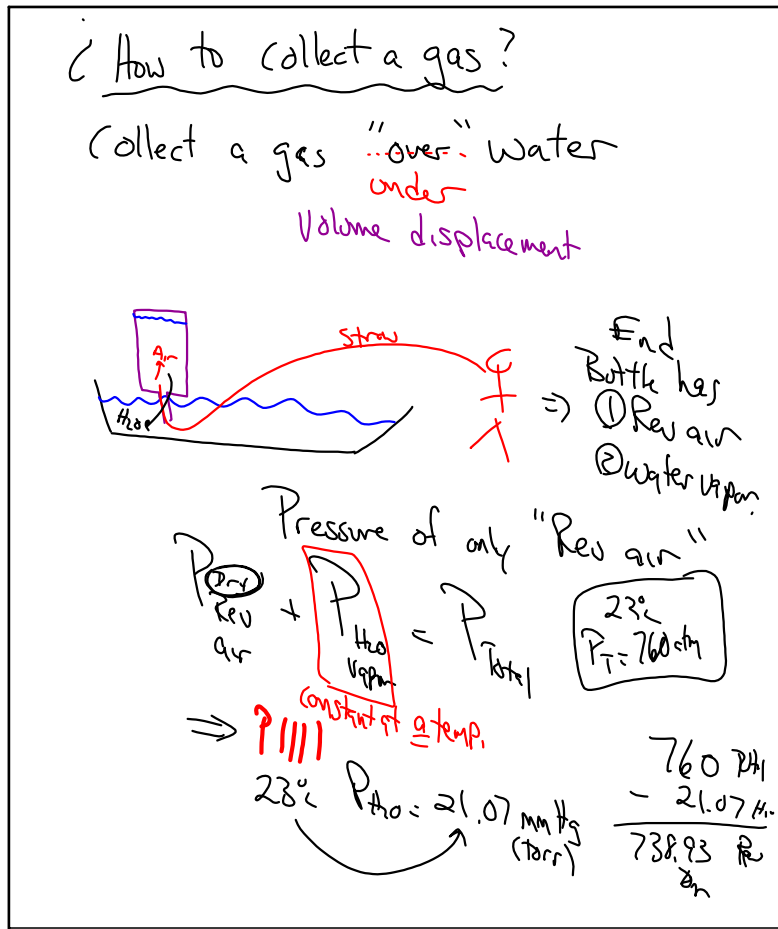 ¿ How to collect a gas?
Collect a gas "over" water
under
Volume displacement
straw
Air
H2O
End
Bottle has
① Rev air
② water vapor
Pressure of only "Rev air"
P Dry Rev air + P H2O vapor = P Total
23°C
PT = 760 atm
constant at a temp.
⇒ P
23°C PH2O = 21.07 mmHg
(torr)
760
- 21.07
738.93